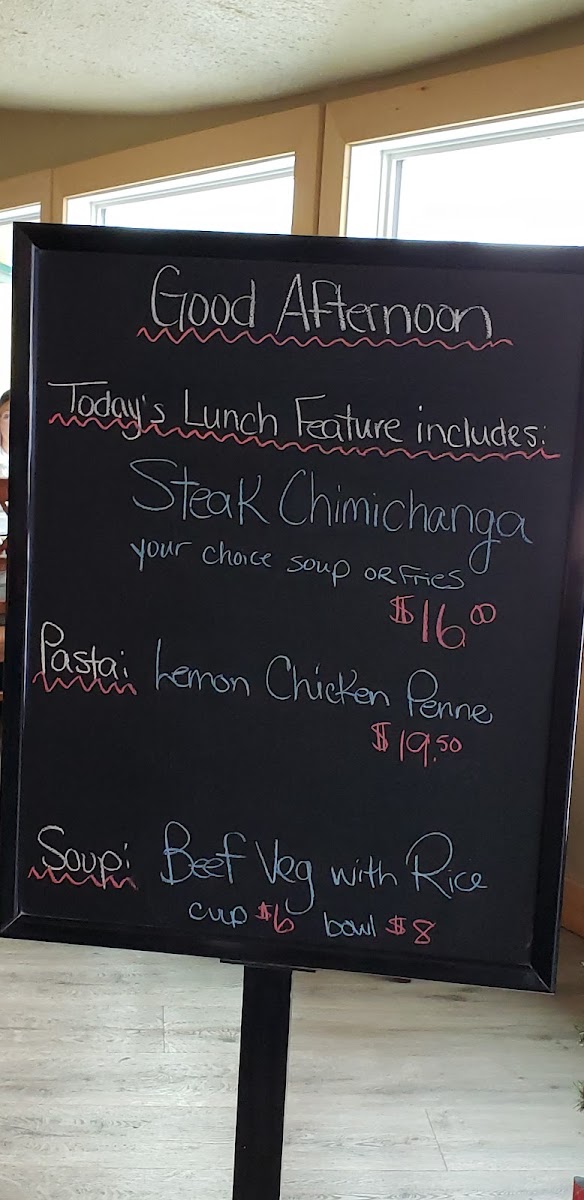 Good Afternoon
Today's Lunch Feature includes:
Steak Chimichanga
your choice soup or fries
$16.00
Pasta: Lemon Chicken Penne
$19.50
Soup: Beef Veg with Rice
cup $6 bowl $8